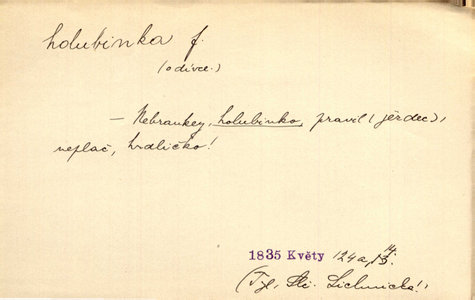 holubinka f.
(o dívce.)
— Nebraukey, holubinko, pravil (jezdec),
neplač, hrdličko!
1835 Květy 124a, 13. 14.
(Tyl,